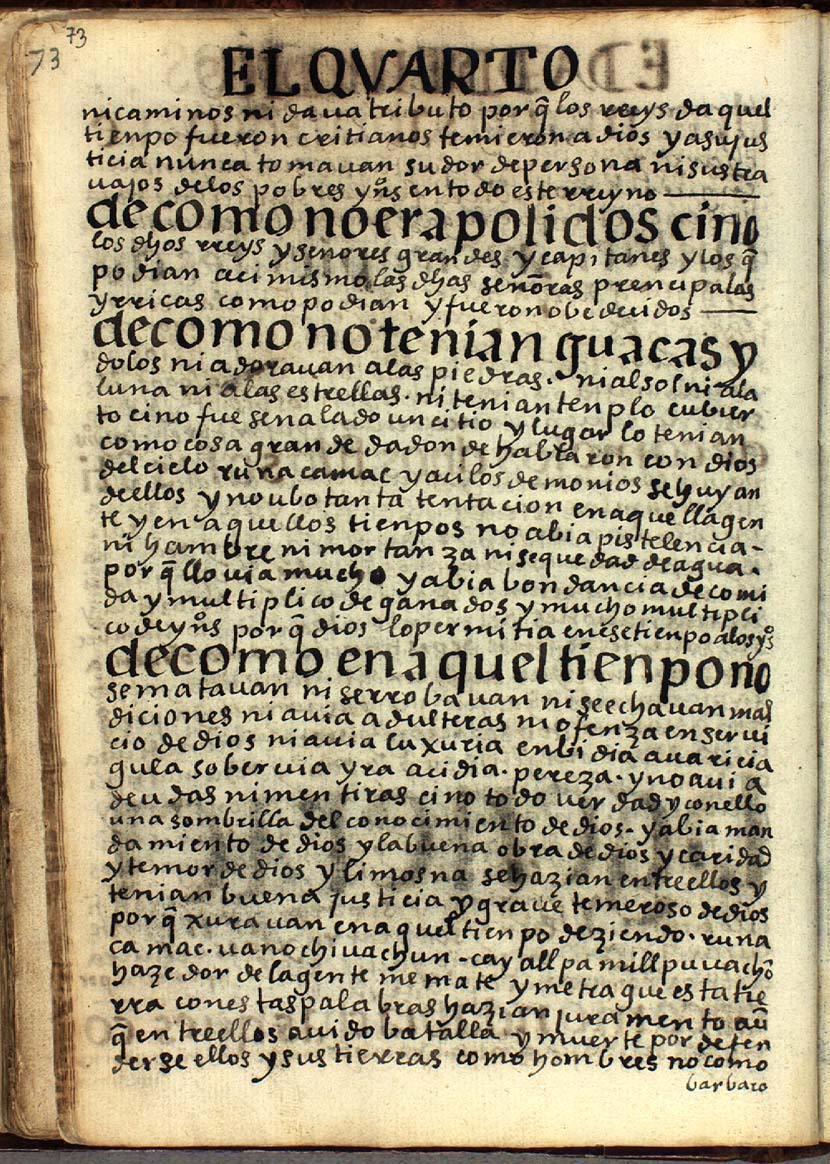 73
73
EL QVARTO
ni caminos ni daua tributo porq̃ los rreys daquel
tienpo fueron critianos temieron a dios y a su jus
ticia nunca tomauan sudor de persona ni sus tra
uajos de los pobres yn̄s en todo este rreyno
de como no era polidos cino
los dhos rreys y señores grandes y capitanes y los q̃
podian aci mismo las dhas señoras prencipalas
y rricas como podian y fueron obedecidos
de como no tenian guacas y
dolos ni adorauan a las piedras. ni al sol ni a la
luna ni a las estrellas. ni tenian tenplo cubier
to cino fue señalado un citio y lugar lo tenian
como cosa grande dadonde hablaron con dios
del cielo runa camac y aci los demonios se huyan
de ellos y no ubo tanta tentacion en aquella gen
te y en aquellos tienpos no abia pistelencia-
ni hambre ni mortanza ni sequedad de agua.
por q̃ llouia mucho y abia bondancia de comi
da y multiplico de ganados y mucho multipli
co de yn̄s por q̃ dios lo permitia en ese tienpo a los yn̄s
de como en aquel tienpo no
se matauan ni se rrobauan ni se echauan mal
diciones ni auia adulteras ni ofenza en serui
cio de dios ni auia luxuria enbidia auaricia
gula soberuia yra acidia. pereza. y no auia
deudas ni mentiras cino todo uerdad y con ello
una sombrilla del conocimiento de dios. y abia man
damiento de dios y la buena obra de dios y caridad
y temor de dios y limosna se hazian entre ellos y
tenian buena justicia y graue temeroso de dios
por q̃ xurauan en aquel tienpo deziendo. runa
camac. uanochiuachun-cay allpa millpuuachõ
hazedor de la gente me mate y me trague esta tie
rra con estas palabras hazian juramento aũ
q̃ entre ellos auido batalla y muerte por defen
derse ellos y sus tierras como hombres no como
barbaro